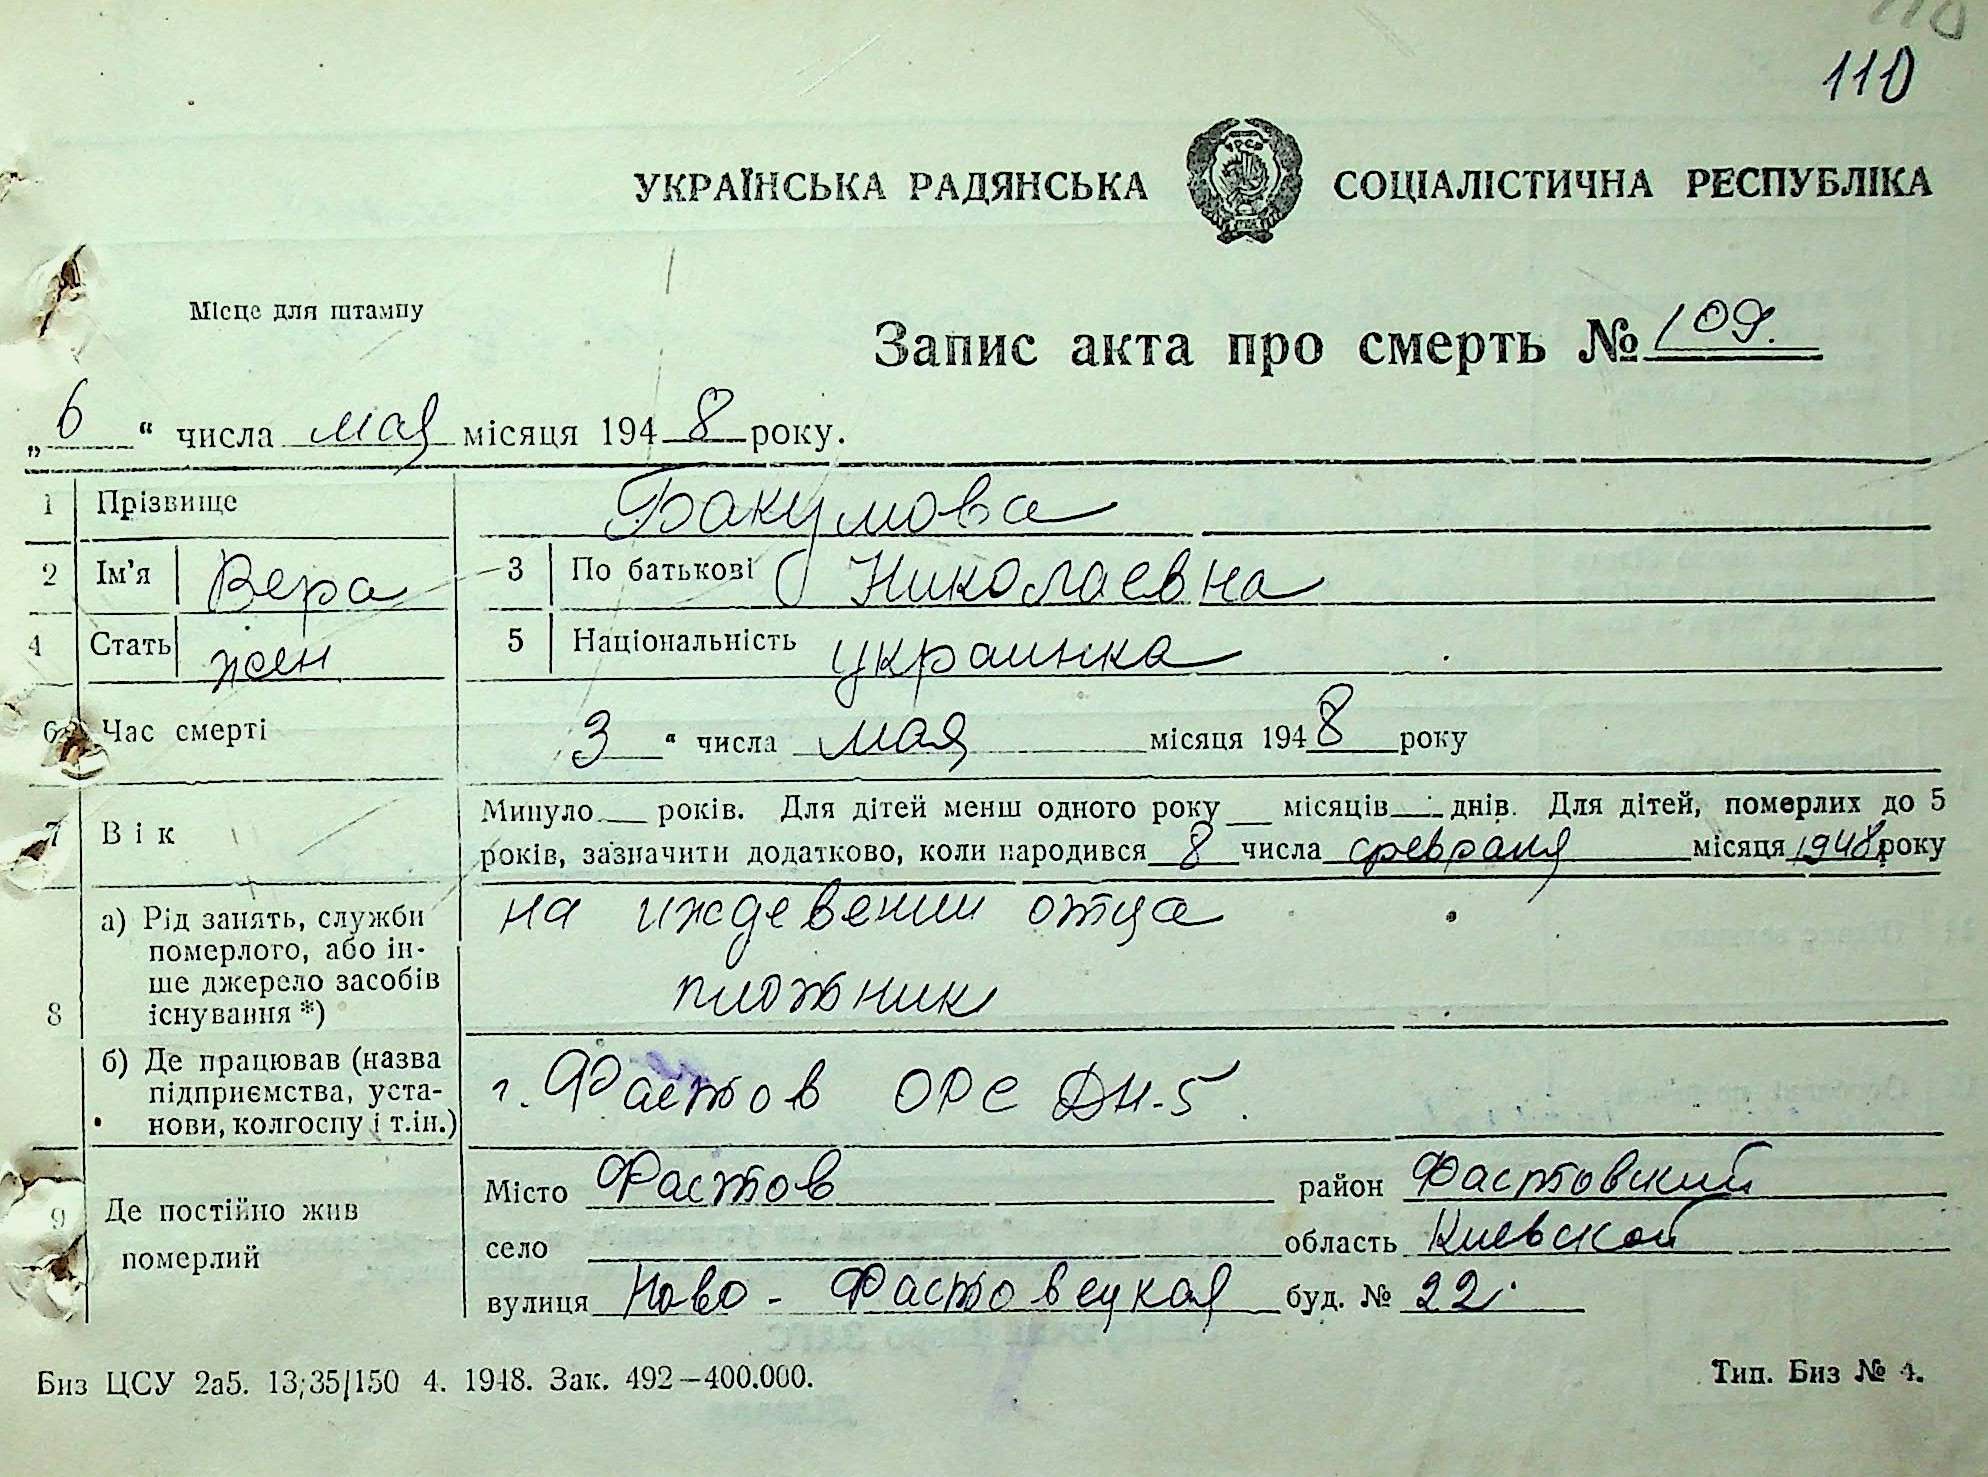 110
110
УКРАЇНСЬКА РАДЯНСЬКА СОЦІАЛІСТИЧНА РЕСПУБЛІКА
Місце для штампу
Запис акта про смерть № 109.
„ 6 “ числа мая місяця 1948 року.
1 Прізвище Бакумова
2 Ім'я Вера 3 По батькові Николаевна
4 Стать жен 5 Національність украинка
6 Час смерті 3 “ числа мая місяця 1948 року
Минуло років. Для дітей менш одного року місяців днів. Для дітей, померлих до 5
7 Вік років, зазначити додатково, коли народився 8 числа февраля місяця 1948 року
8 а) Рід занять, служби померлого, або інше джерело засобів існування *) на иждевении отца
плотник
б) Де працював (назва підприємства, установи, колгоспу і т.ін.) г. Фастов ОРС ДН-5.
9 Де постійно жив померлий Місто Фастов район Фастовский
село область Киевской
вулиця Ново - Фастовецкая буд. № 22.
Биз ЦСУ 2а5. 13;35/150 4. 1948. Зак. 492—400.000. Тип. Биз № 4.